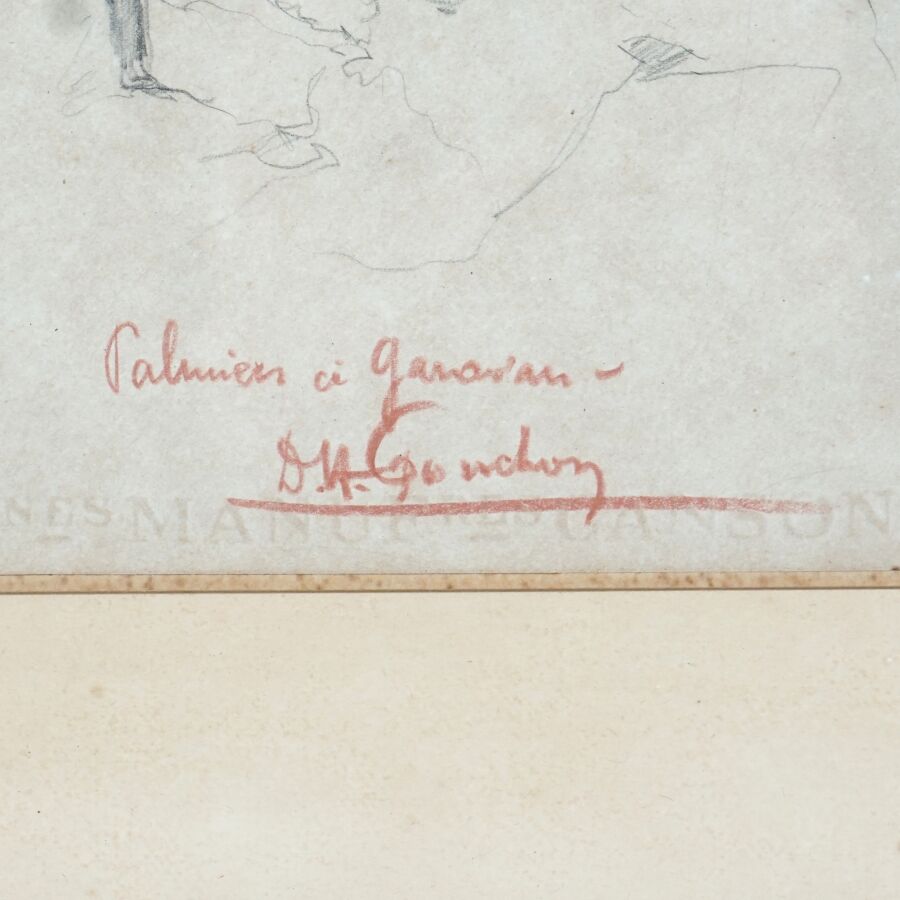 Palmiers à Garavan -
D.A. Ponchon
MANUF CANSON